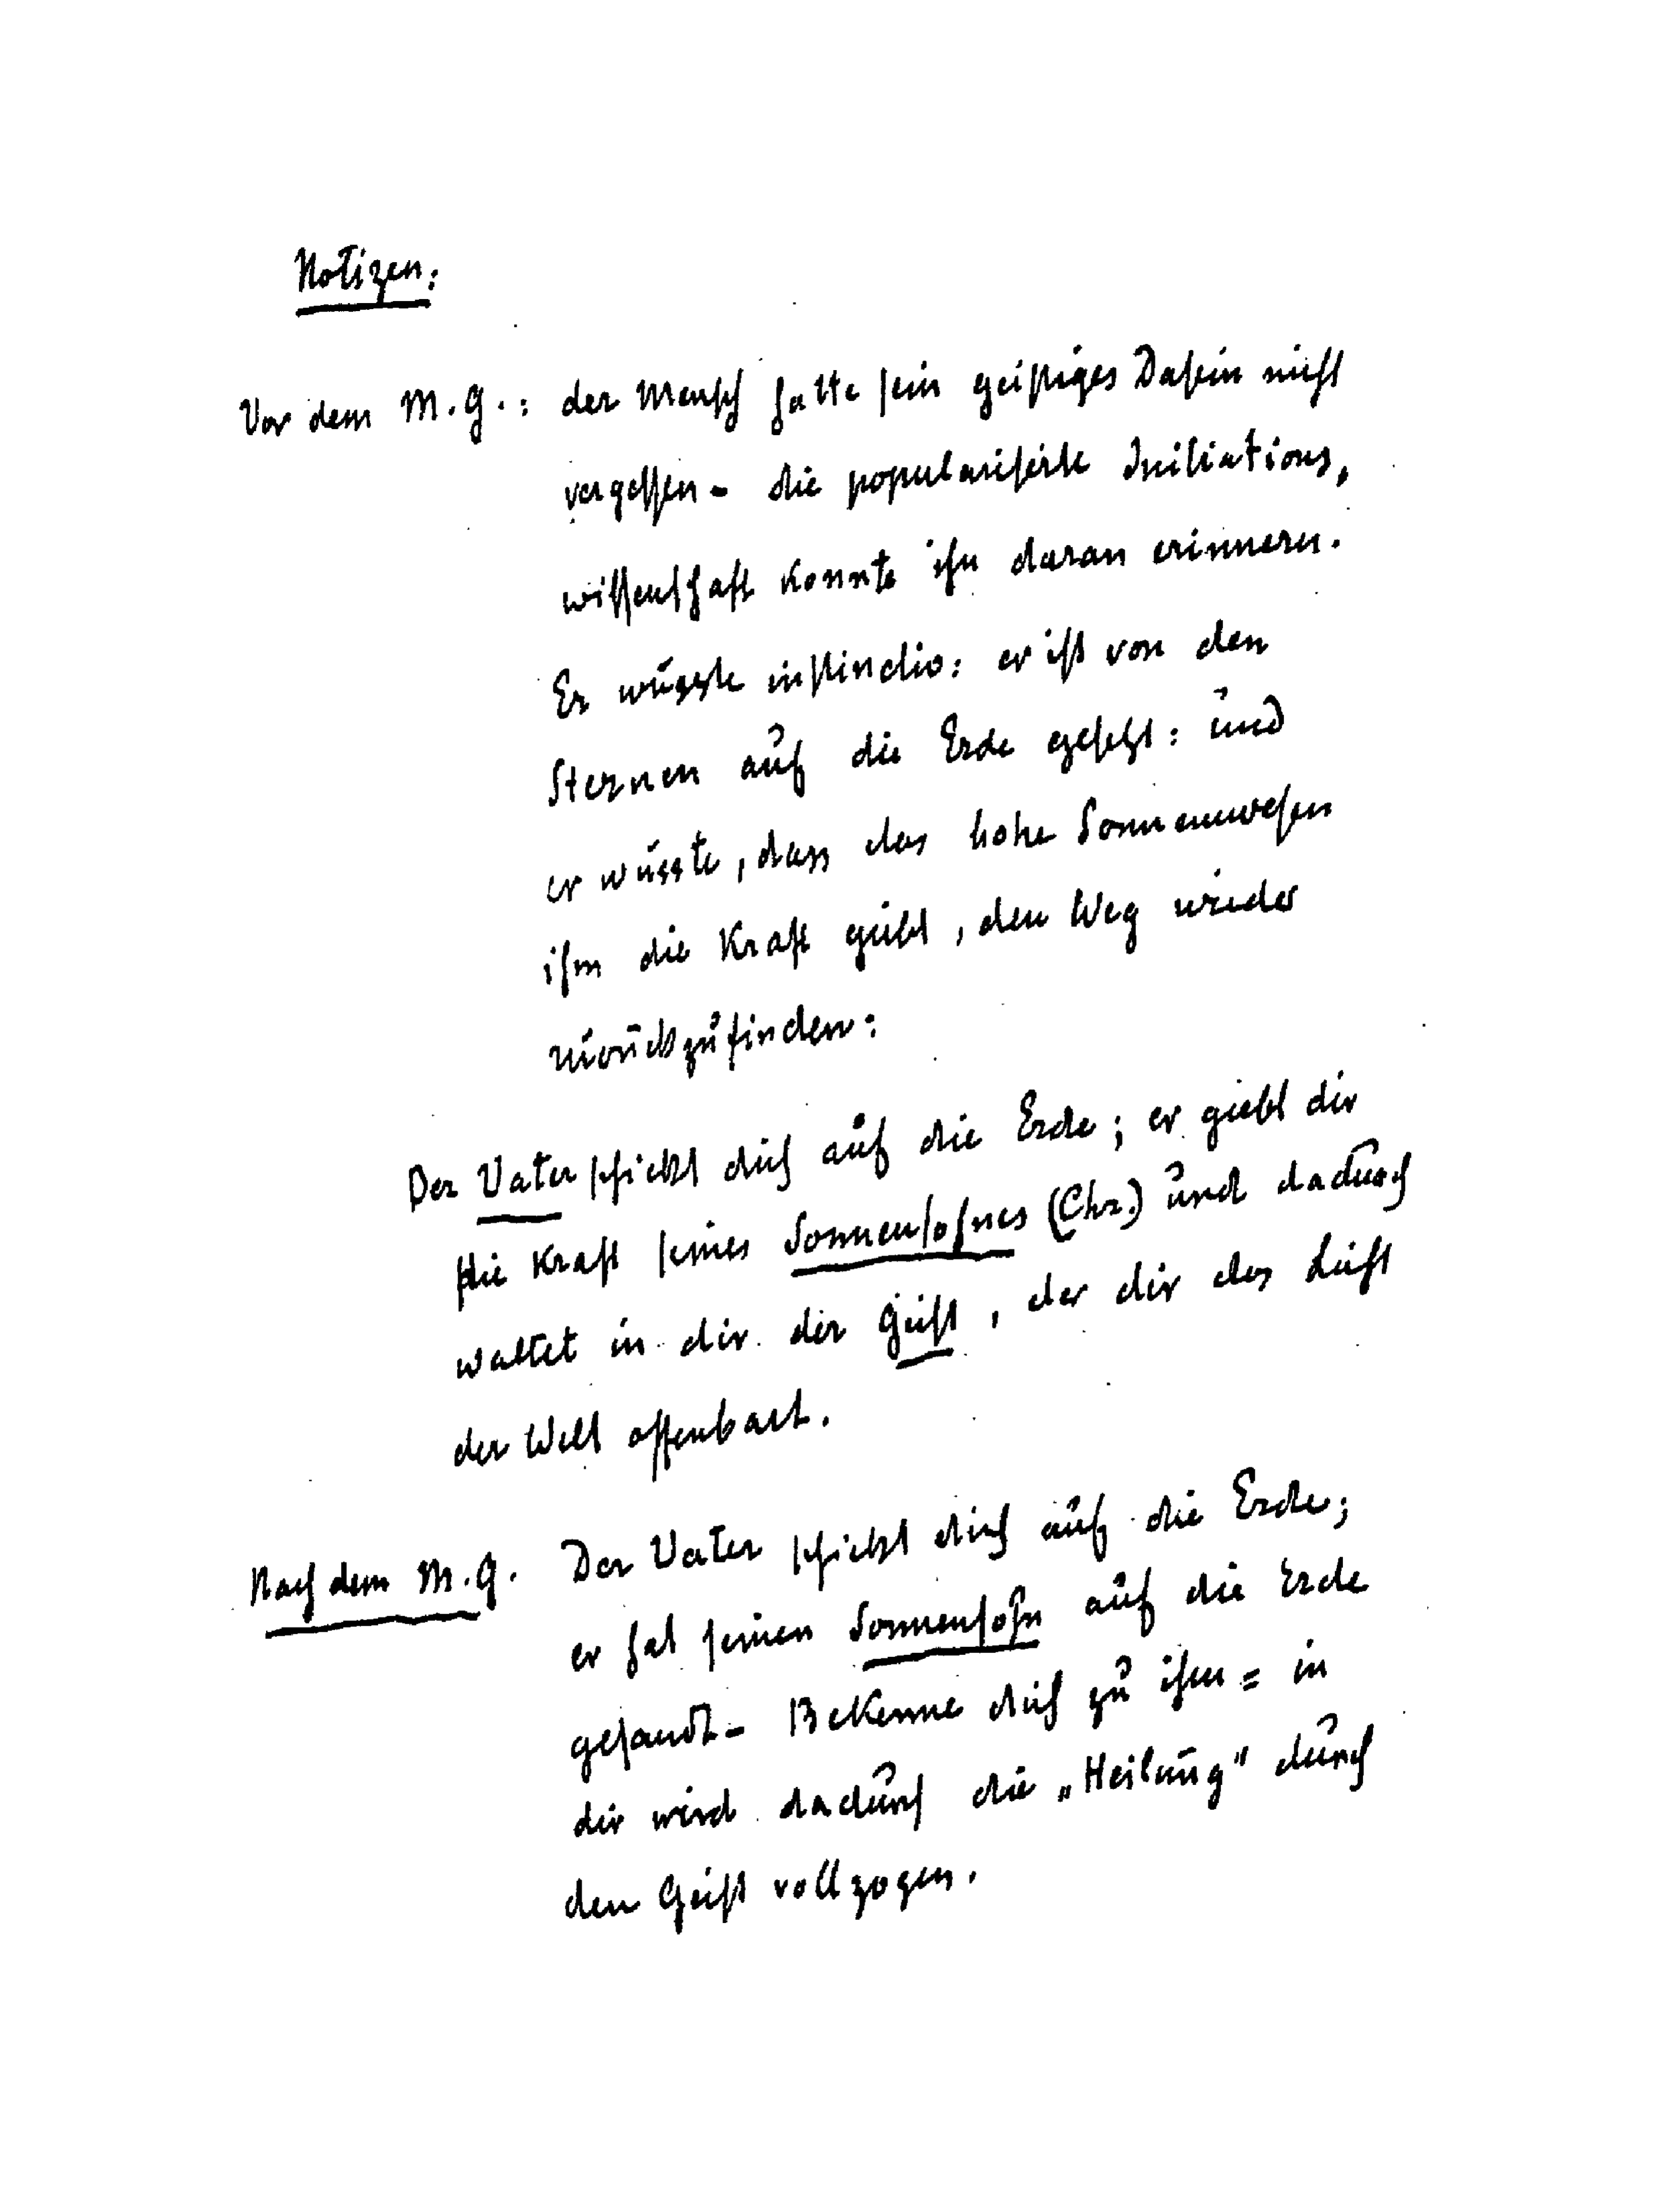 Notizen:
Vor dem M. G.: der Mensch hatte sein geistiges Dasein nicht
vergessen - die popularisierte Initiations,
wissenschaft konnte ihn daran erinnern.
Er wusste instinctiv: er ist von den
Sternen auf die Erde gesetzt: und
er wusste, dass das hohe Sonnenwesen
ihm die Kraft giebt, den Weg wieder
zurückzufinden:
Der Vater schickt dich auf die Erde; er giebt dir
die Kraft seines Sonnensohnes (Chr.) und dadurch
waltet in dir der Geist, der dir das Licht
der Welt offenbart.
Nach dem M. G. Der Vater schickt dich auf die Erde;
er hat seinen Sonnensohn auf die Erde
gesandt - Bekenne dich zu ihm = in
dir wird dadurch die „Heilung" durch
den Geist vollzogen.